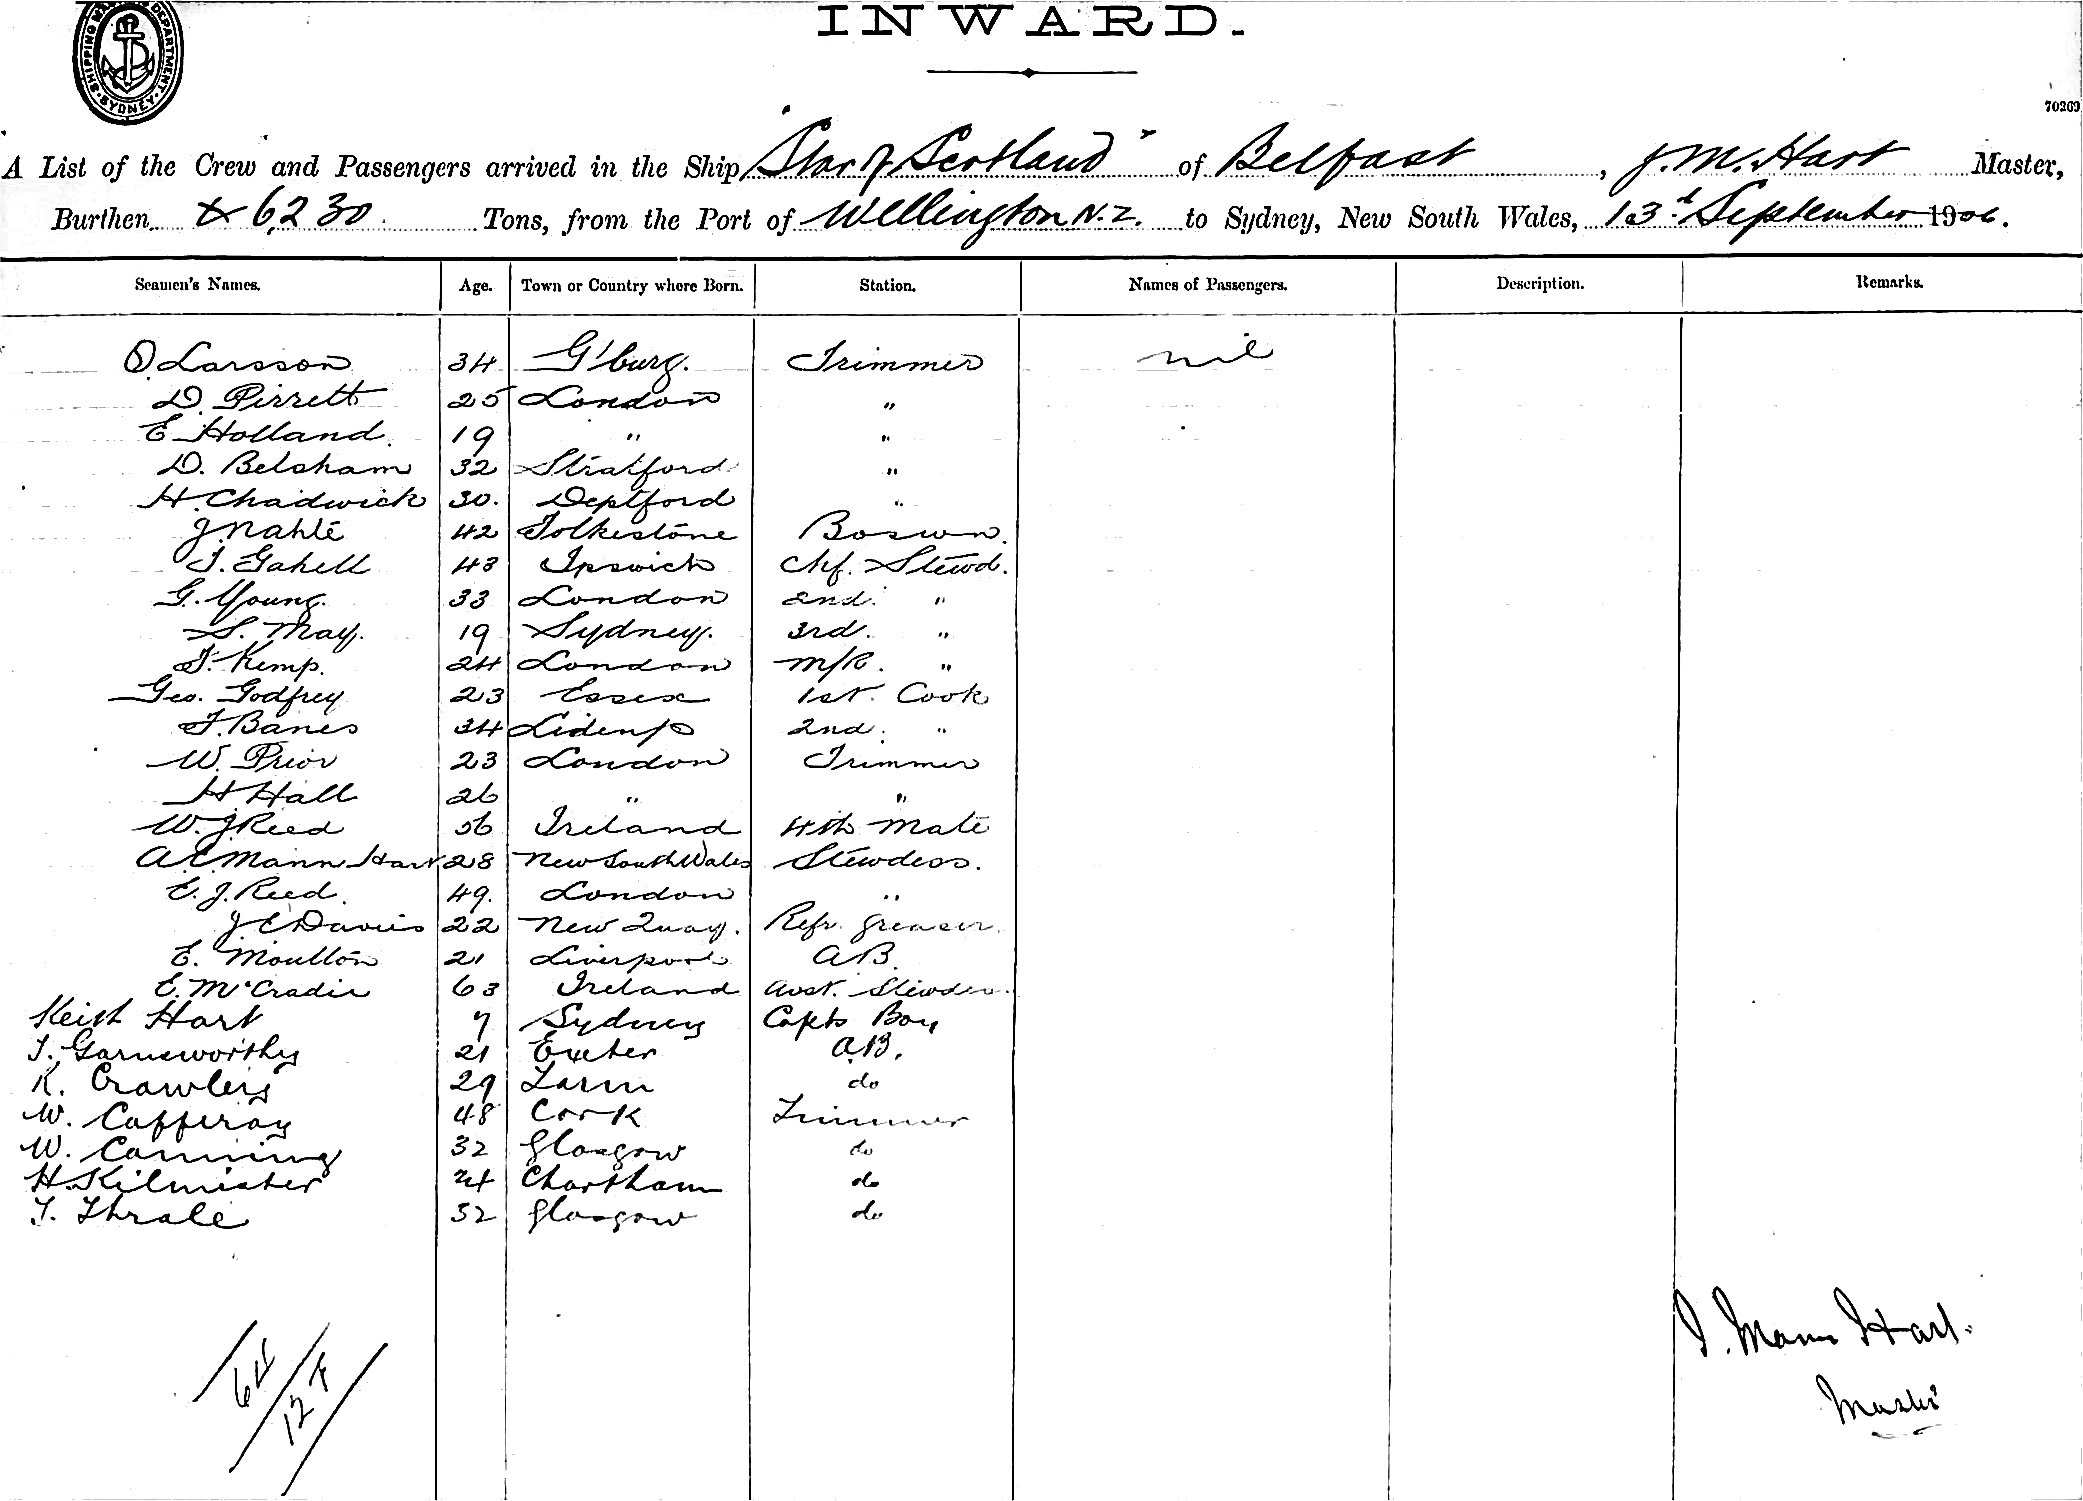 INWARD.
SHIPPING DEPARTMENT SYDNEY
70269
A List of the Crew and Passengers arrived in the Ship "Star of Scotland" of Belfast, J. M. Hart Master,
Burthen 6,230 Tons, from the Port of Wellington N.Z. to Sydney, New South Wales, 13th September 1906.
Seamen's Names. Age. Town or Country where Born. Station. Names of Passengers. Description. Remarks.
O. Larsson 34 G'burg. Trimmer nil
D. Pirrett 25 London "
E Holland. 19 " "
D. Belsham 32 Stratford "
H. Chadwick 30. Deptford "
J. Nahlé 42 Folkestone Boswn.
T. Gahell 43 Ipswich Chf. Stewd.
G. Young. 33 London 2nd. "
S. May. 19 Sydney. 3rd. "
F. Kemp. 24 London M/R. "
Geo. Godfrey 23 Essex 1st. Cook
F. Banes 34 2nd. "
W. Prior 23 London Trimmer
H Hall 26 " "
W. J. Reed 56 Ireland 4th Mate
A. E. Mann Hart 28 New South Wales Stewdess.
E. J. Reed. 49. London "
J E Davies 22 New Quay. Refr. Greaser.
E. Moulton 21 Liverpool AB.
E. McCradie 63 Ireland Stewdess.
Keith Hart 7 Sydney Capts Boy
T. Garnsworthy 21 Exeter A.B.
K. Crawley 29 do
W. Cafferay 48 Cork Trimmer
W. Canning 32 Glasgow do
H. Kilmister 24 Chartham do
T. Thrale 32 Glasgow do
J. Mann Hart.
Master
64